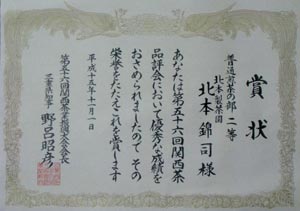 賞状
普通煎茶の部 二等
北本製茶園
北本錦司様
あなたは第五十六回関西茶
品評会において優秀な成績を
おさめられましたのでその
栄誉をたたえこれを賞します
平成十五年十一月一日
第五十六回関西茶業振興大会会長
三重県知事 野呂昭彦